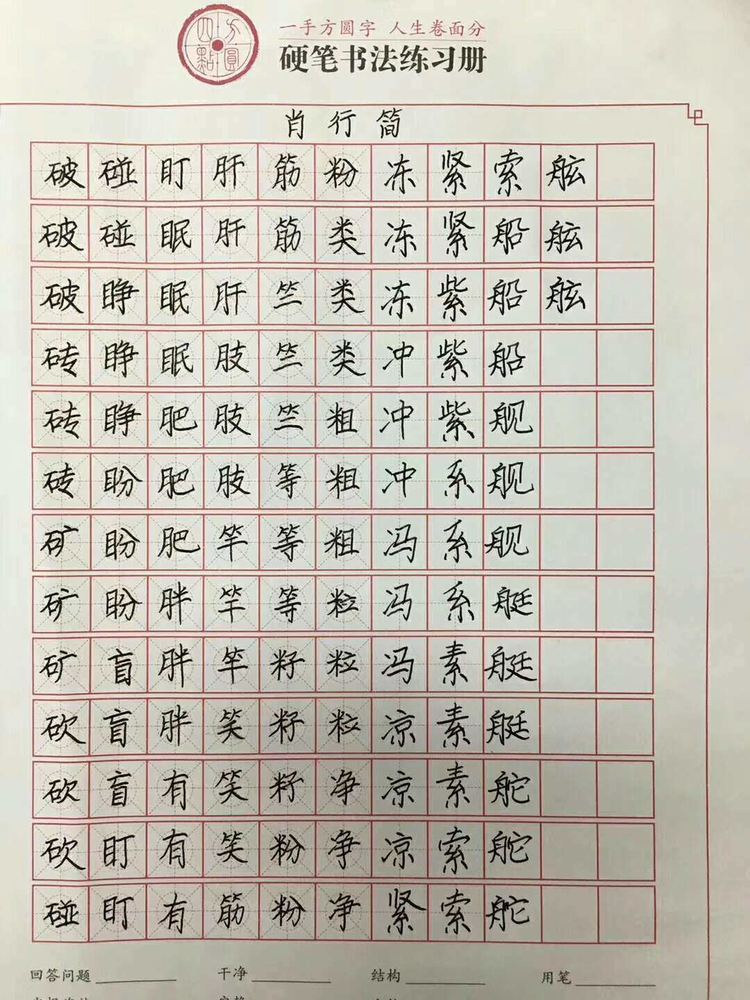 四方點圓
一手方圆字 人生卷面分
硬笔书法练习册
肖行简
破碰盯肝筋粉冻紧索舷
破碰眠肝筋类冻紧船舷
破睁眠肝竺类冻紫船舷
砖睁眠肢竺类冲紫船
砖睁肥肢竺粗冲紫舰
砖盼肥肢等粗冲系舰
矿盼肥竿等粗冯系舰
矿盼胖竿等粒冯系艇
矿盲胖竿籽粒冯素艇
砍盲胖笑籽粒凉素艇
砍盲有笑籽净凉素舵
砍盯有笑粉净凉索舵
碰盯有筋粉净紧索舵
回答问题 干净 结构 用笔